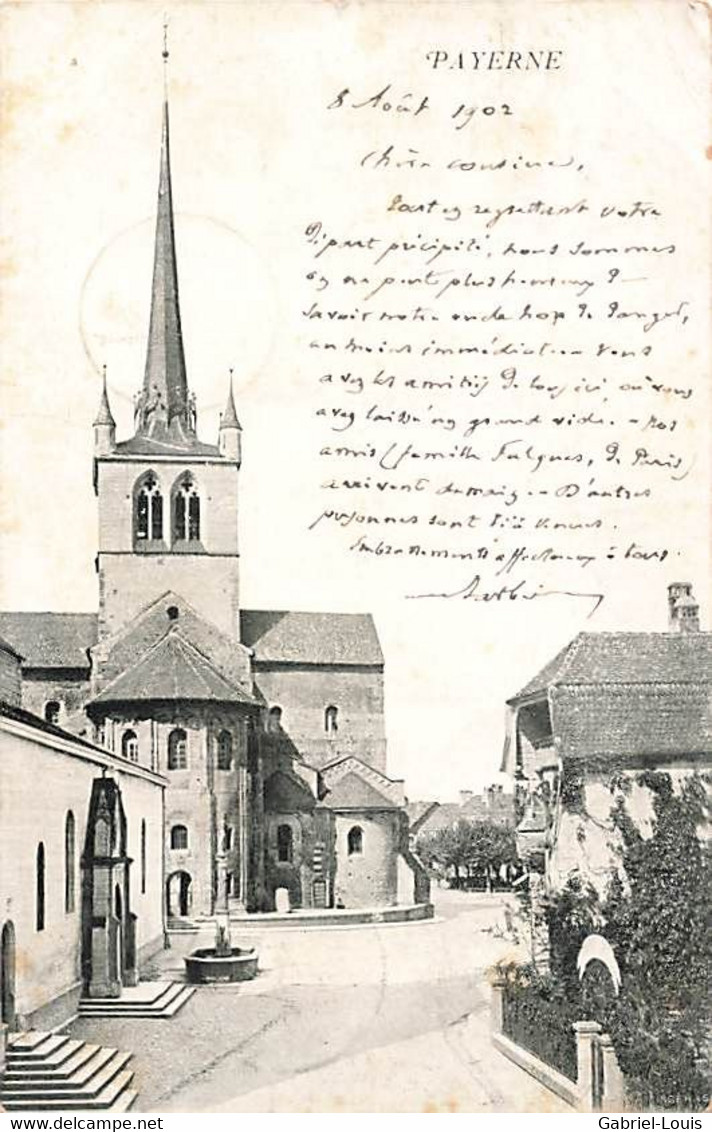 PAYERNE
8 Août 1902
Chère cousine,
Tout en regrettant votre
départ précipité, nous sommes
on ne peut plus heureux de
savoir notre hors de danger,
au moins immédiat. Vous
avez les amitiés de tous ici, où vous
avez laissé un grand vide. - Nos
amis (famille Falgues, de Paris)
arrivent demain. - D'autres
personnes sont déjà venues.
Embrassements affectueux à tous.
Gabriel-Louis